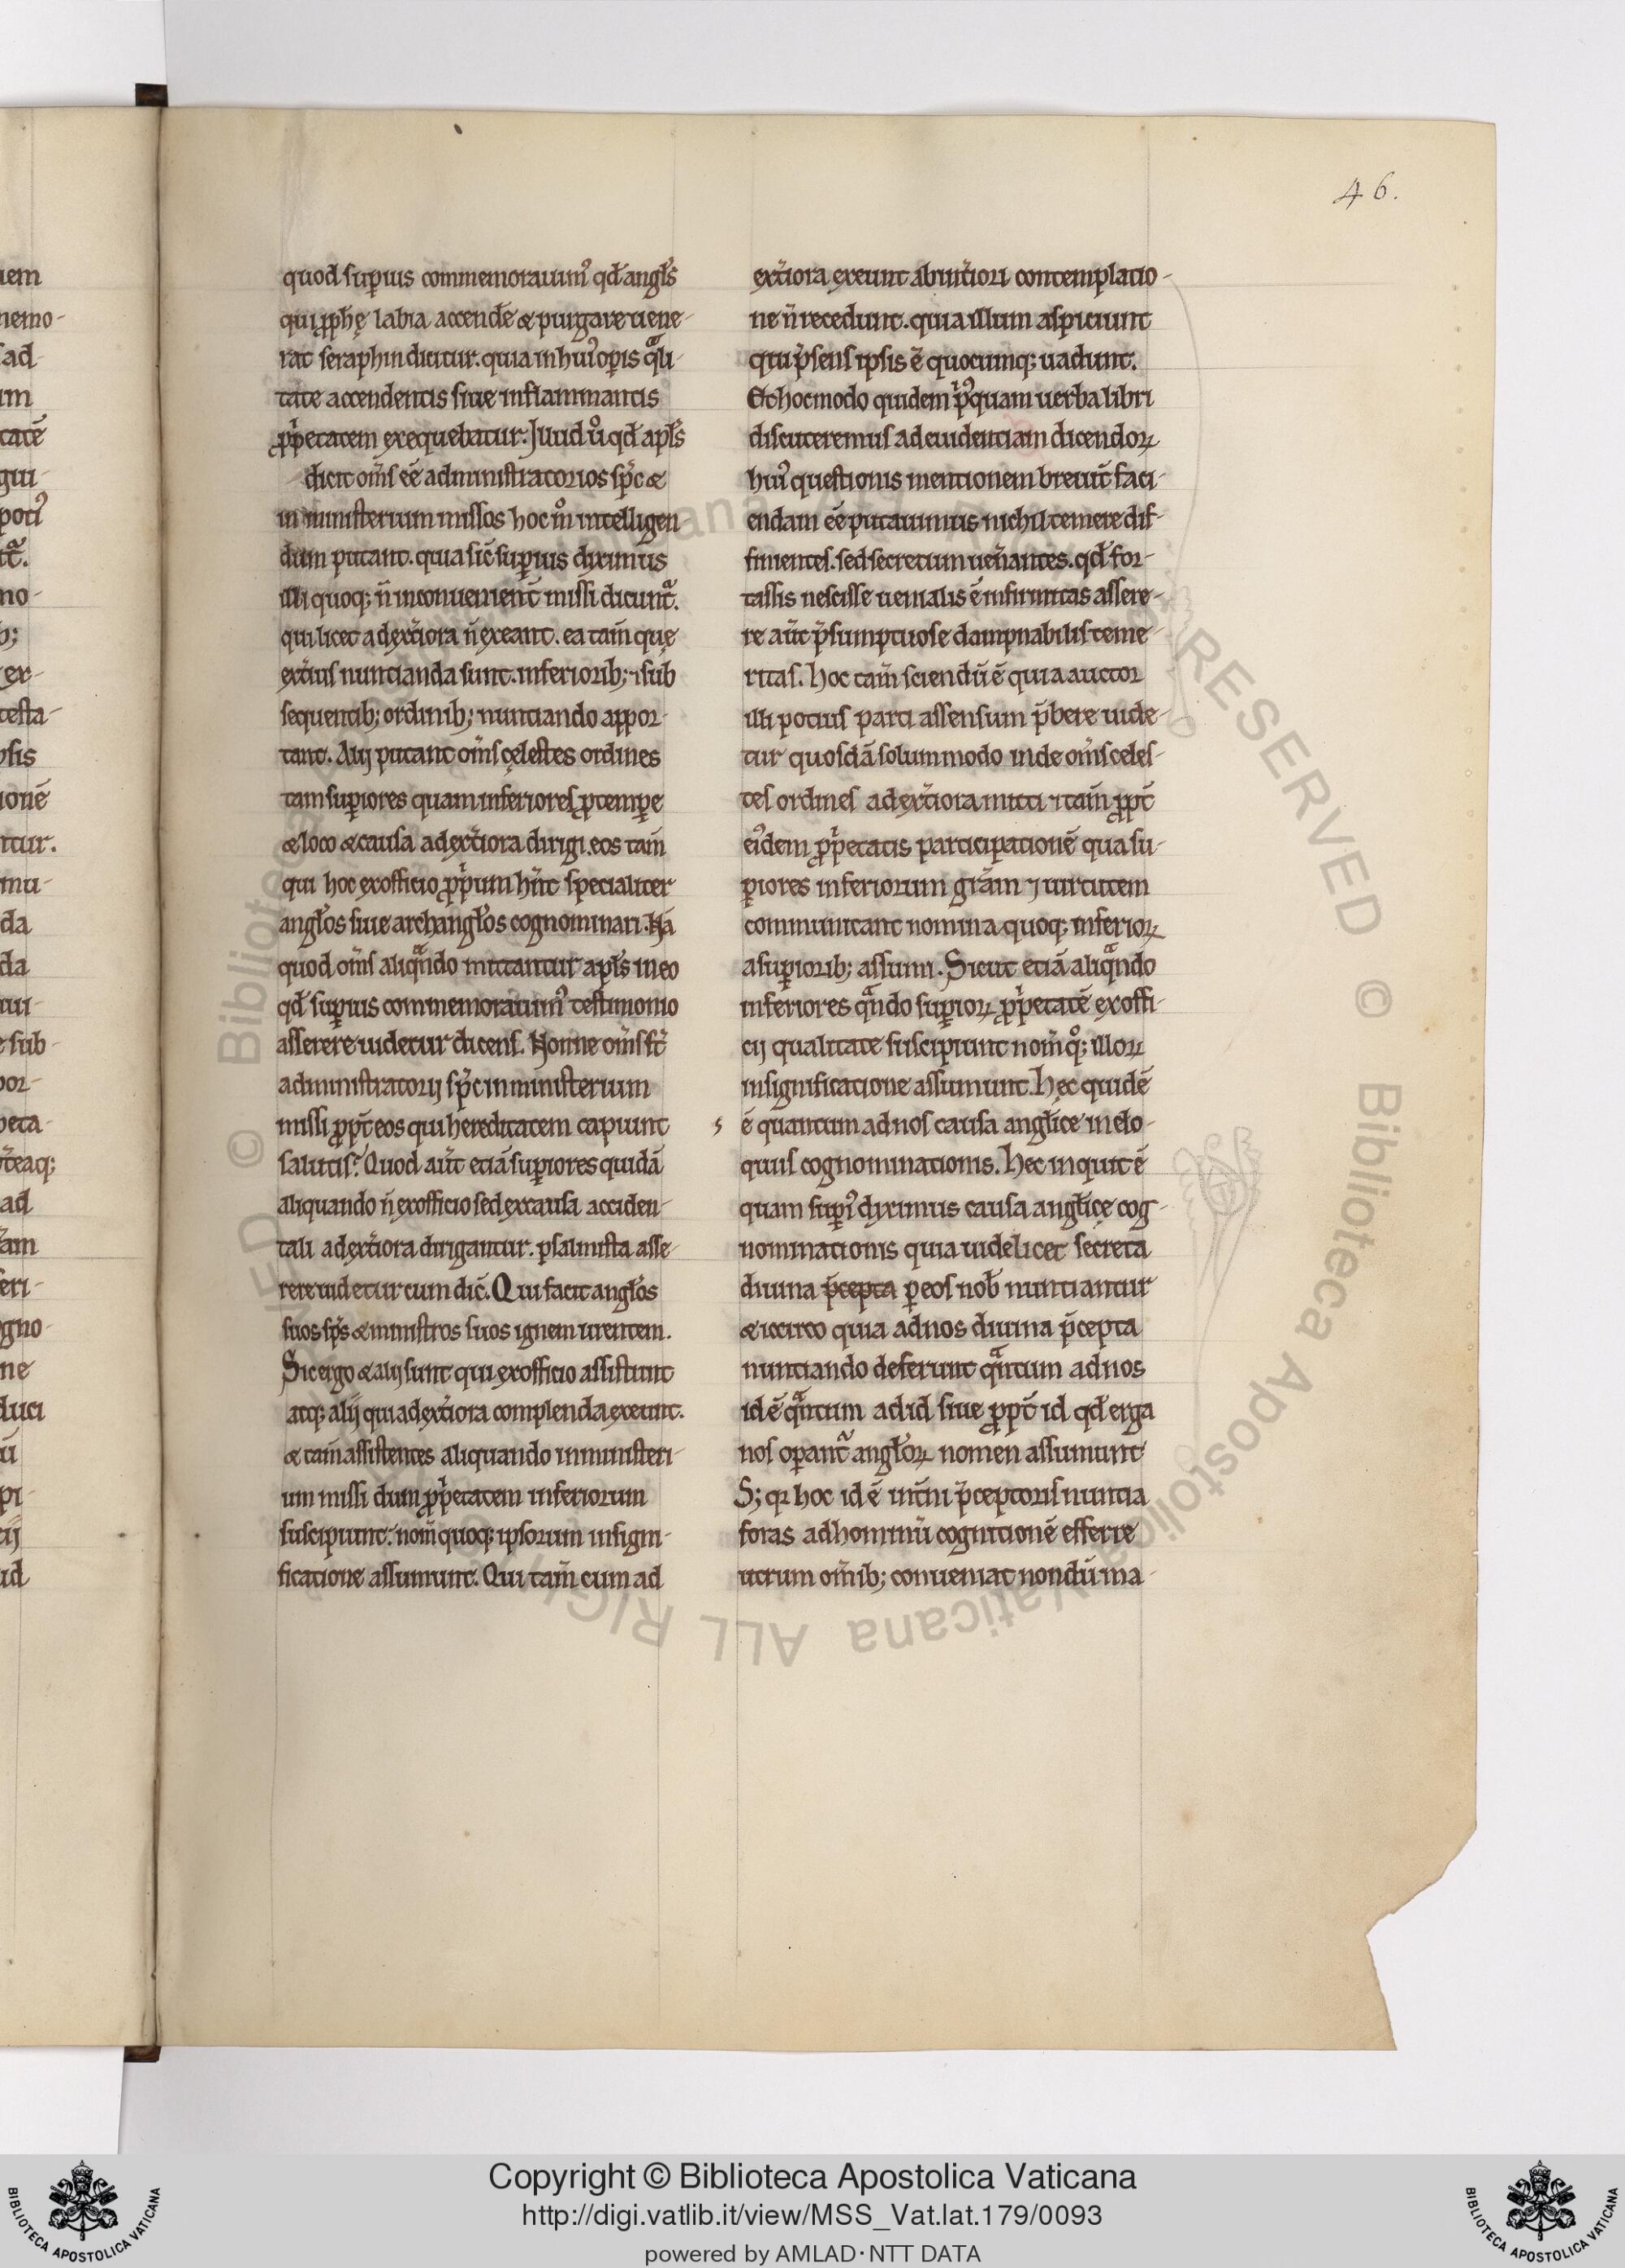 46.
quod sup̱ius commemorauimꝰ qđ angłs
qui ꝓph̄ę labia accendē̆ & purgare uene-
rat seraphin dicitur. quia in huiꝰ oꝑis qͣli-
tate accendentis siue inflammantis
ꝓpͥetatem exequebatur. Illud u̾o qđ apłs
dicit om̄s eē administratorios sp̄c &
in ministerium missos hoc m̊ intelligen
dum putant. quia sic̄ suꝑius diximus
illi quoq; n̄ inconuenient̄ missi dicunt̾.
qui licet ad ext̾iora n̄ exeant. ea tam̄ quę
ext̾ius nuntianda sunt. inferiorib; ⁊ sub
sequentib; ordinib; nuntiando appor-
tant. Alij putant om̄s cęlestes ordines
tam suꝑiores quam inferiores ꝓ tempe
& loco & causa ad ext̾iora dirigi. eos tam̄
qui hoc ex officio ꝓpͥum hn̄t specialiter
angłos siue archangłos cognominari. Nā
quod om̄s aliqͣndo mittantur apłs in eo
qđ suꝑius commemorauimꝰ testimonio
asserere uidetur dicens. Nonne om̄s st̄
administratorij sp̄c in ministerium
missi ꝓpt̄ eos qui hereditatem capiunt
salutis? Quod aut̄ etiā suꝑiores quidā
aliquando n̄ ex officio sed ex causa acciden-
tali ad ext̾iora dirigantur. psalmista asse-
rere uidetur cum dic̄. Qui facit angłos
suos sp̄s & ministros suos ignem urentem.
Sic ergo & alij sunt qui ex officio assistunt
atq; alij qui ad ext̾iora complenda exeunt.
& tam̄ assistentes aliquando in ministeri-
um missi dum ꝓpͥetatem inferiorum
suscipiunt: nom̄ quoq; ipsorum in signi-
ficatione assumunt. Qui tam̄ cum ad
ext̾iora exeunt ab int̾iori contemplatio-
ne n̄ recedunt. quia illum aspiciunt
qui p̄sens ipsis ē quocumq; uadunt.
Et hoc modo quidem pͥꝰquam uerba libri
discuteremus ad euidentiam dicendoꝝ
huiꝰ questionis mentionem breuit̄ faci-
endam eē putauimus nichil temere dif-
finientes. sed secretum uen̄antes. qđ for-
tassis nescisse uenialis ē infirmitas assere-
re aut̄ p̄sumptuose dampnabilis teme-
ritas. hoc tam̄ sciendū ē quia auctor
illi potius parti assensum p̄bere uide-
tur quosdā solummodo inde om̄s celes-
tes ordines ad ext̾iora mitti ⁊ tam̄ ꝓpt̄
eiꝰdem ꝓpͥetatis participationē qua su-
ꝑiores inferiorum gr̄am ⁊ uirtutem
communicant nomina quoq; inferioꝝ
a suꝑiorib; assumi. Sicut etiā aliqͣndo
inferiores qͣndo suꝑioꝝ ꝓpͥetatē ex offi-
cij qualitate suscipiunt nom̄ qͦ; illoꝝ
in significatione assumunt. hęc quidē
ē quantum ad nos causa angłice in elo-
quiis cognominationis. hec inquit ē
quam suꝑꝰ diximus causa angłicę cog-
nominationis quia uidelicet secreta
diuina p̄cepta ꝑ eos nob̄ nuntiantur
& iccirco quia ad nos diuina p̄cepta
nuntiando deferunt qͣntum ad nos
id ē qͣntum ad id siue ꝓpt̄ id qđ erga
nos oꝑant̾ angłoꝝ nomen assumunt
S; qꝛ hoc id ē int̄ni p̄ceptoris nuntia
foras ad hominū cognitionē efferre
utrum om̄ib; conueniat nondū ma-
Copyright © Biblioteca Apostolica Vaticana
http://digi.vatlib.it/view/MSS_Vat.lat.179/0093
powered by AMLAD·NTT DATA